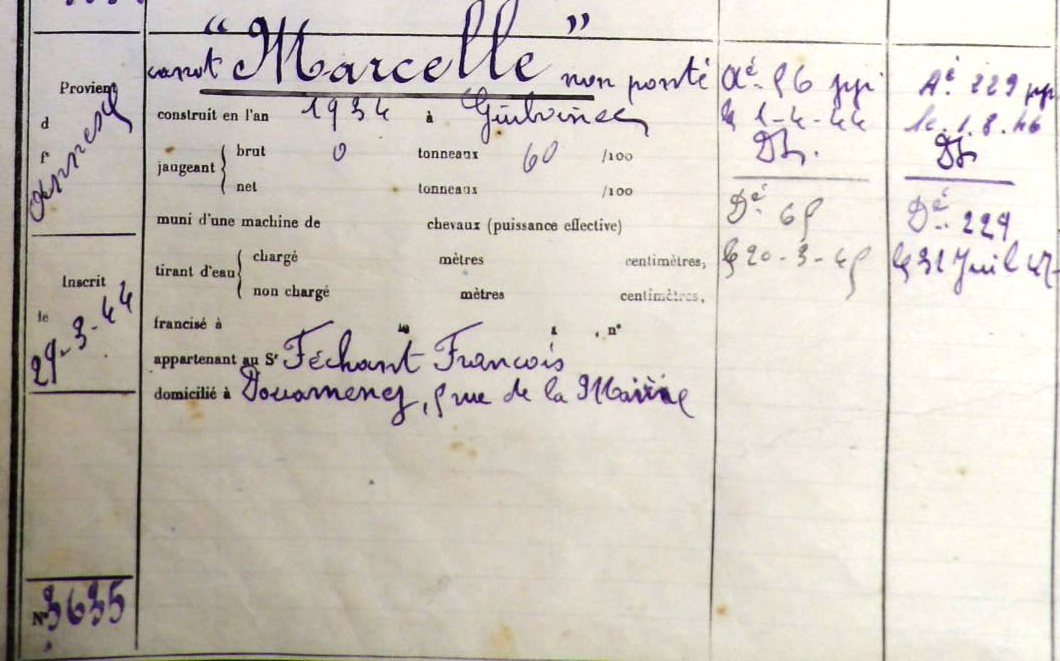 Provient
d
r
annexe
Inscrit
le
29-3-44
N° 3635
canot "Marcelle" non ponté
construit en l'an 1934 à Guilvinec
jaugeant { brut 0 tonneaux 60 /100
net tonneaux /100
muni d'une machine de chevaux (puissance effective)
tirant d'eau { chargé mètres centimètres,
non chargé mètres centimètres,
francisé à le , n°
appartenant au Sr Féchant François
domicilié à Douarnenez, 5 rue de la Mairie
Aé. 56 ppi
le 1-4-44
Dz.
Dé. 65
le 20-3-45
Aé. 229 ppi
le 1.8.46
Dz
Dé. 229
le 31 Juil 47